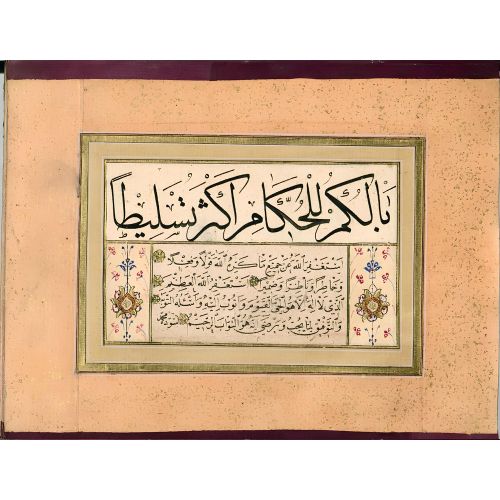 بالكم للحكام أكثر تسليطاً
استغفر الله من جميع ما كره الله قولا وفعلا
وخاطرا وناظرا استغفر الله العظيم
الذي لا إله إلا هو الحي القيوم وأتوب إليه
والتوفيق لما يحب ويرضى إنه هو التواب الرحيم